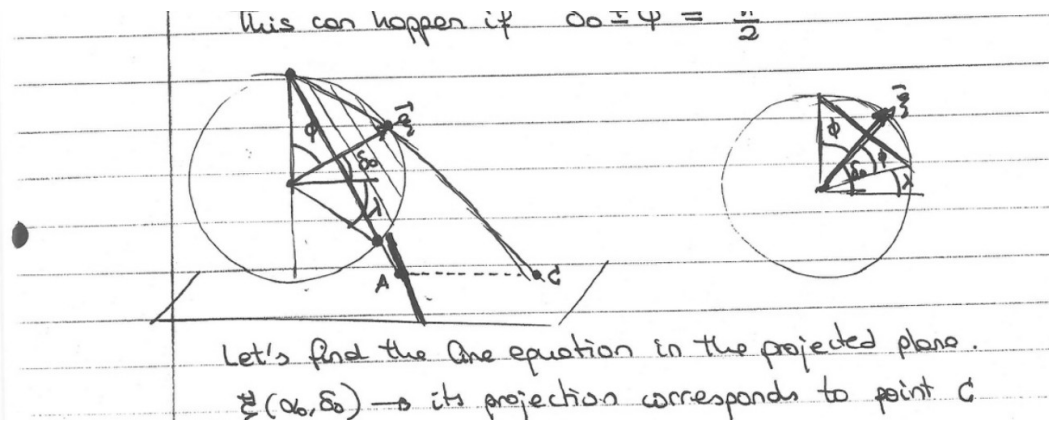 this can happen if δ₀ ± φ = π/2
φ
ξ
δ₀
λ
A
C
φ
ξ
δ₀
φ
λ
Let's find the line equation in the projected plane.
ξ (α₀, δ₀) → its projection corresponds to point C